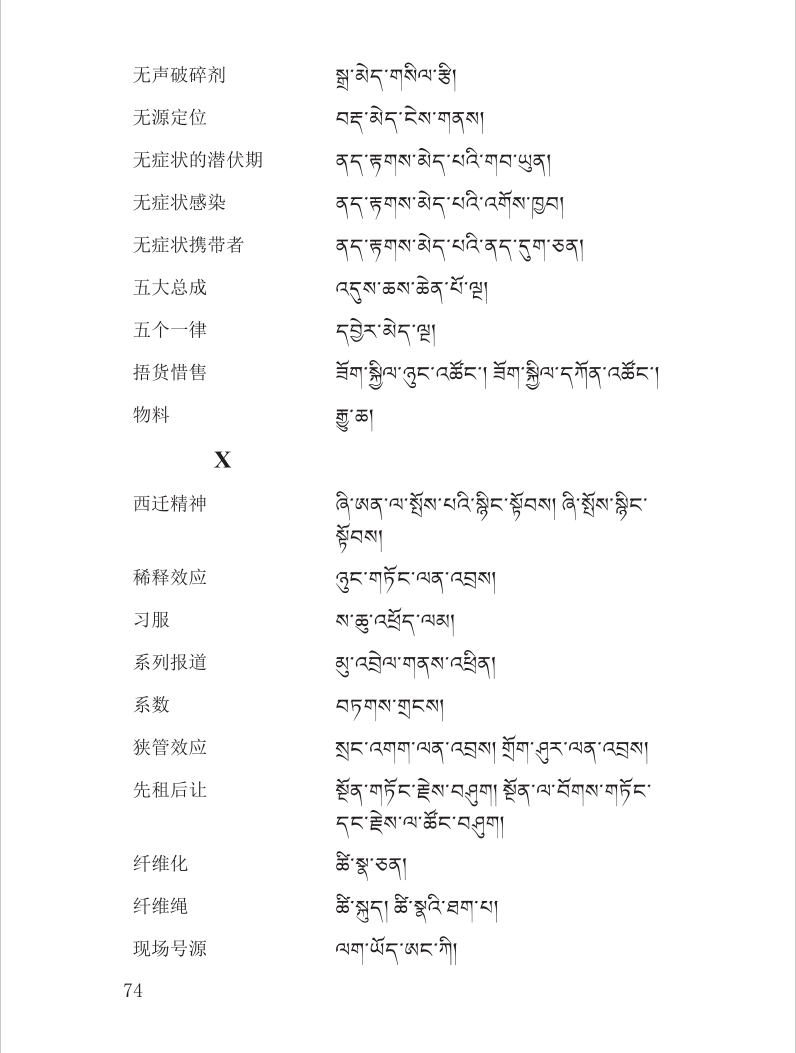 无声破碎剂 སྒྲ་མེད་གསིལ་རྩི།
无源定位 བརྡ་མེད་ངེས་གནས།
无症状的潜伏期 ནད་རྟགས་མེད་པའི་གབ་ཡུན།
无症状感染 ནད་རྟགས་མེད་པའི་འགོས་ཁྱབ།
无症状携带者 ནད་རྟགས་མེད་པའི་ནད་དུག་ཅན།
五大总成 འདུས་ཆས་ཆེན་པོ་ལྔ།
五个一律 དབྱེར་མེད་ལྔ།
捂货惜售 ཟོག་སྐྱིལ་ཉུང་འཚོང་། ཟོག་སྐྱིལ་དཀོན་འཚོང་།
物料 རྒྱུ་ཆ།
X
西迁精神 ཞི་ཨན་ལ་སྤོས་པའི་སྙིང་སྟོབས། ཞི་སྤོས་སྙིང་
སྟོབས།
稀释效应 ཉུང་གཏོང་ལན་འབྲས།
习服 ས་ཆུ་འཕྲོད་ལམ།
系列报道 མུ་འབྲེལ་གནས་འཕྲིན།
系数 བཏགས་གྲངས།
狭管效应 སྲང་འགག་ལན་འབྲས། གྲོག་ཤུར་ལན་འབྲས།
先租后让 སྔོན་གཏོང་རྗེས་བཤུག། སྔོན་ལ་བོགས་གཏོང་
དང་རྗེས་ལ་ཚོང་བཤུག།
纤维化 ཚི་སྣ་ཅན།
纤维绳 ཚི་སྐུད། ཚི་སྣའི་ཐག་པ།
现场号源 ལག་ཡོད་ཨང་ཀི།
74